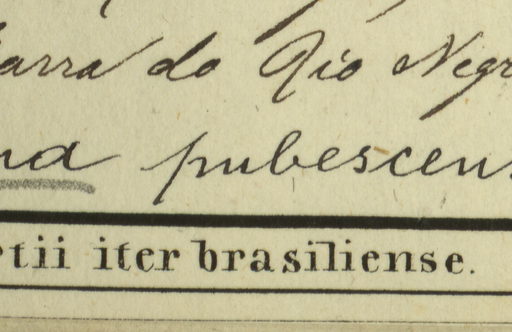 arra do Rio Negr
na pubescens
rtii iter brasiliense.